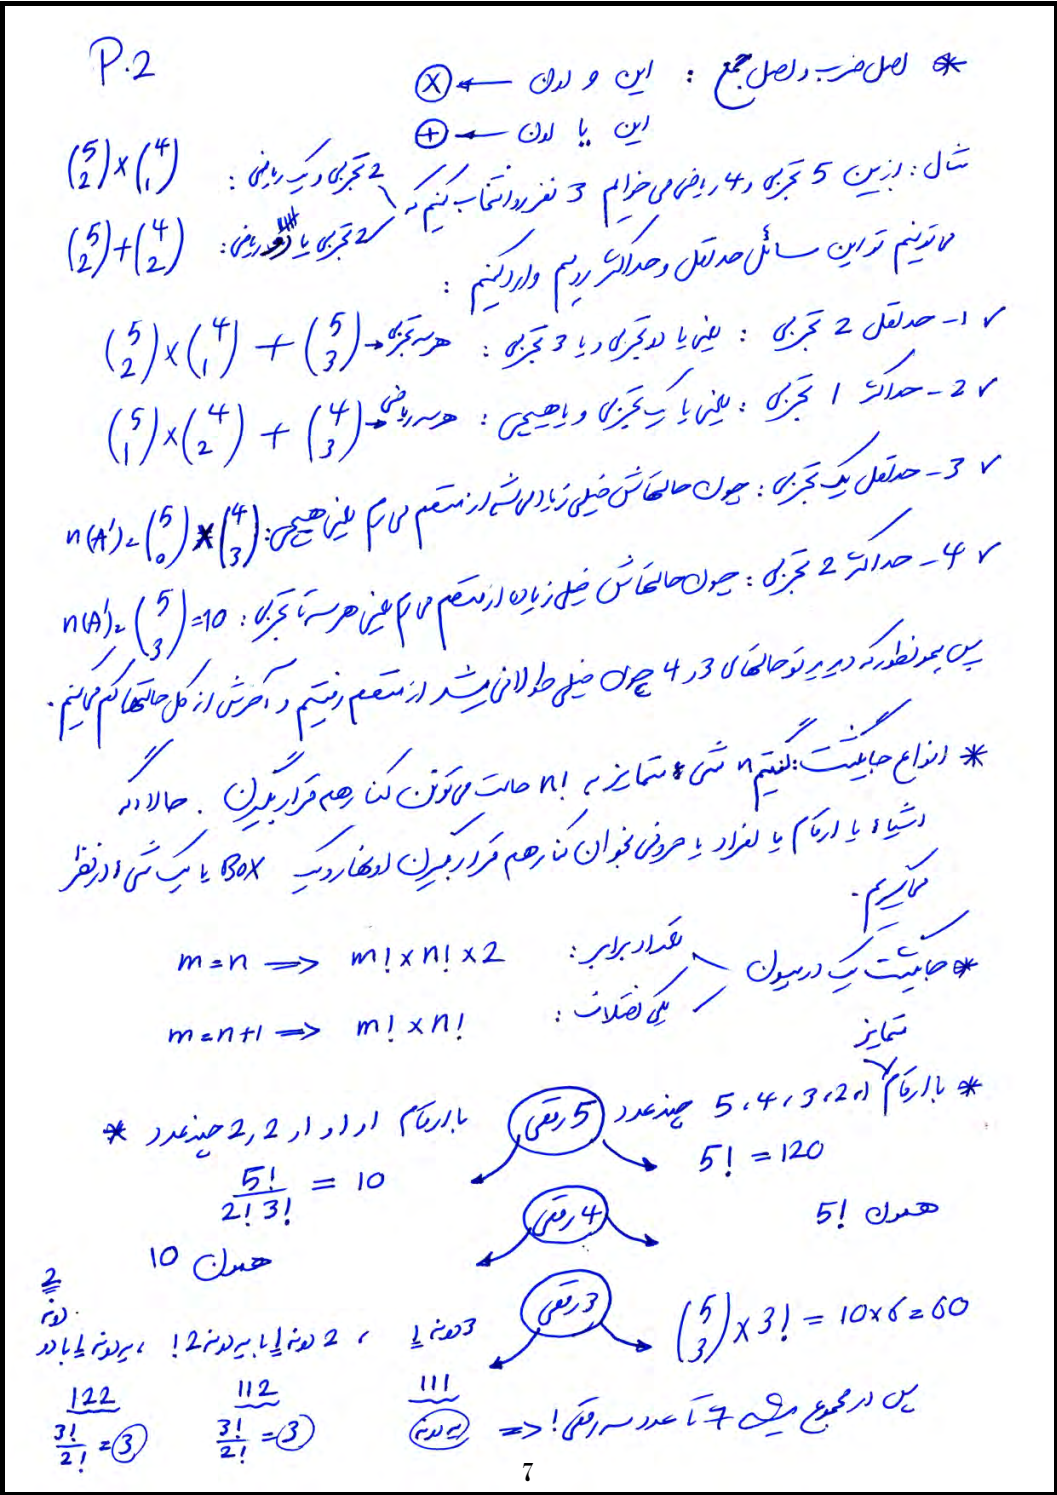 P.2
* اصل ضرب و اصل جمع : این و اون ← ⊗
این یا اون ← ⊕
مثال : از بین 5 تجربی و 4 ریاضی می خوایم 3 نفر رو انتخاب کنیم که
2 تجربی و یک ریاضی : (5 2) × (4 1)
2 تجربی یا دو ریاضی : (5 2) + (4 2)
می تونیم تو این مسائل حداقل و حداکثر رو هم وارد کنیم :
✓ 1- حداقل 2 تجربی : یعنی یا دو تجربی و یا 3 تجربی : (5 2) × (4 1) + (5 3) → هر سه تجربی
✓ 2- حداکثر 1 تجربی : یعنی یا یک تجربی و یا هیچی : (5 1) × (4 2) + (4 3) → هر سه ریاضی
✓ 3- حداقل یک تجربی : چون حالتهاش خیلی زیاد می شه از متمم می ریم یعنی هیچی : n(A') = (5 0) × (4 3)
✓ 4- حداکثر 2 تجربی : چون حالتهاش خیلی زیاده از متمم می ریم یعنی هر سه تا تجربی : n(A') = (5 3) = 10
پس همونطور که دیدید تو حالتهای 3 و 4 چون خیلی طولانی میشد از متمم رفتیم و آخرش از کل حالتها کم می کنیم .
* انواع جایگشت : گفتیم n شیء متمایز به n! حالت می تونن کنار هم قرار بگیرن . حالا اگه
اشیاء یا ارقام یا افراد یا حروفی بخوان کنار هم قرار بگیرن اونها رو یک BOX یا یک شیء در نظر
می گیریم .
* جایگشت یک در میون
تعداد برابر : m = n ⟹ m! × n! × 2
یکی اختلاف : m = n+1 ⟹ m! × n!
متمایز
* با ارقام 1، 2، 3، 4، 5 چند عدد 5 رقمی
5! = 120
* با ارقام 1 و 1 و 1 و 2 و 2 چند عدد
5! / 2! 3! = 10
4 رقمی
همون 5!
همون 10
3 رقمی
(5 3) × 3! = 10×6 = 60
3 دونه 1 ، 2 دونه 1 با یه دونه 2 ! ، یه دونه 1 با دو دونه 2
111
یه دونه
112
3! / 2! = 3
122
3! / 2! = 3
⟹ پس در مجموع میشه 7 تا عدد سه رقمی !
7